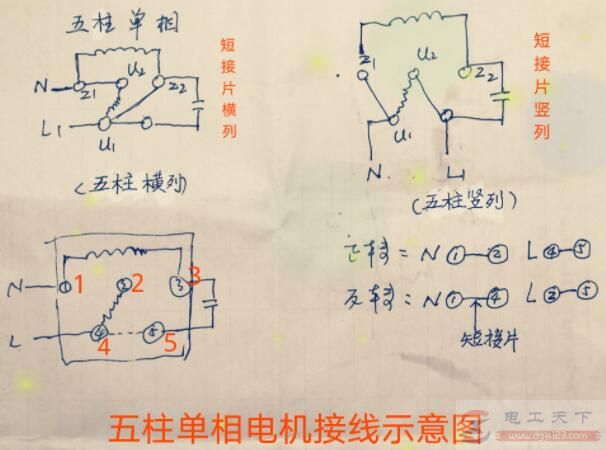 五柱单相
短接片横列
N
Z1
U2
Z2
L1
U1
(五柱横列)
短接片竖列
Z1
U2
Z2
U1
N
L1
(五柱竖列)
N
1
2
3
③
L
④
⑤
4
5
正转= N ①—② L ④—⑤
反转= N ①—④ L ②—⑤
短接片
五柱单相电机接线示意图
电工天下
www.dgjs123.com